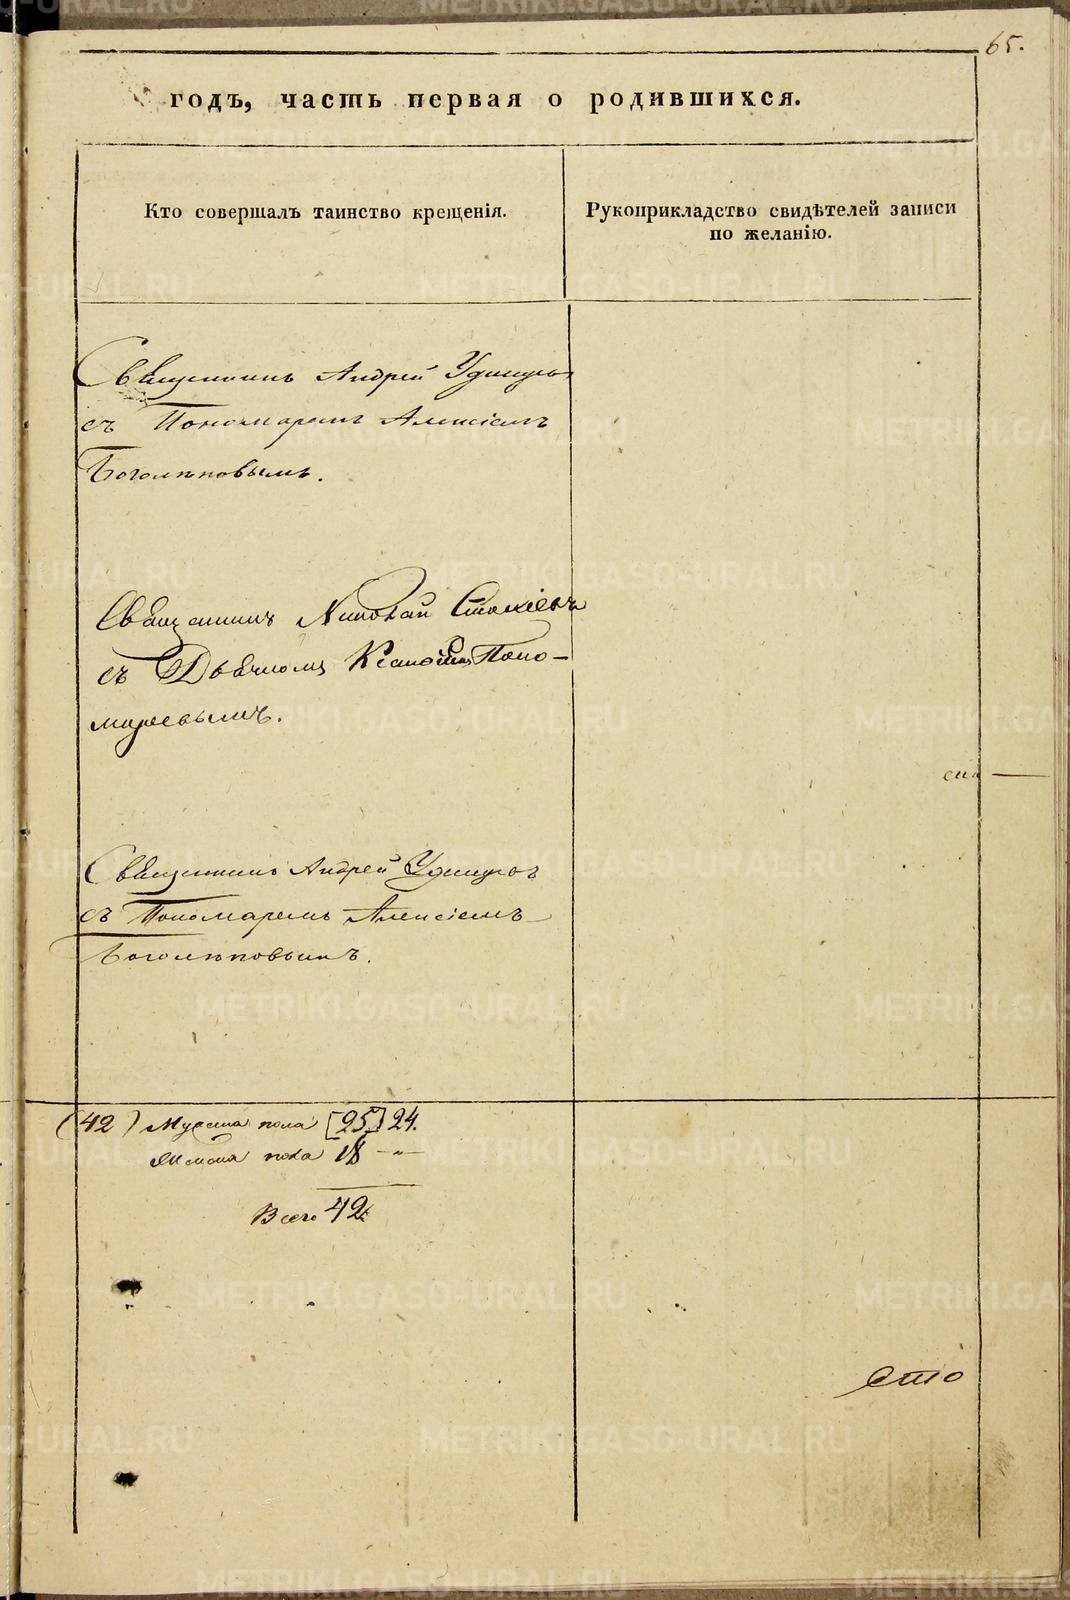 65.
годъ, часть первая о родившихся.
Кто совершалъ таинство крещенія.
Рукоприкладство свидѣтелей записи
по желанію.
Священникъ Андрей Удинцовъ
съ Пономаремъ Алексіемъ
Боголѣповымъ.
Священникъ Николай
съ Дьячкомъ Поно-
маревымъ.
Священникъ Андрей Удинцовъ
съ Пономаремъ Алексіемъ
Боголѣповымъ.
(42) Мужеска пола [25] 24.
Женска пола 18 —„—
Всего 42
сто
METRIKI.GASO-URAL.RU